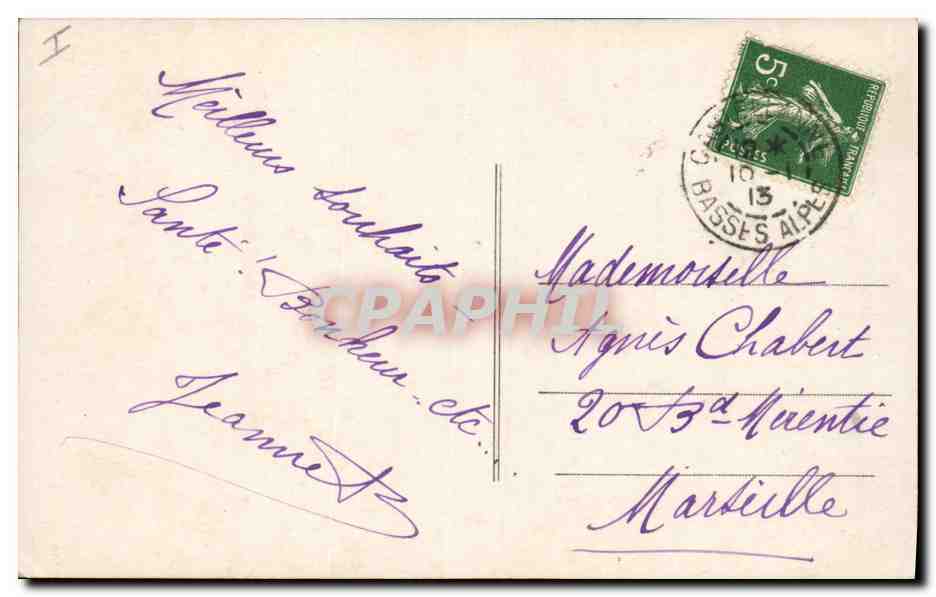 Meilleurs souhaits
Santé! Bonheur. etc...
Jeanne B
Mademoiselle
Agnès Chabert
20 Bd Mérentie
Marseille
5c
REPUBLIQUE FRANÇAISE
POSTES
BASSES ALPES
13
CPAPHIL